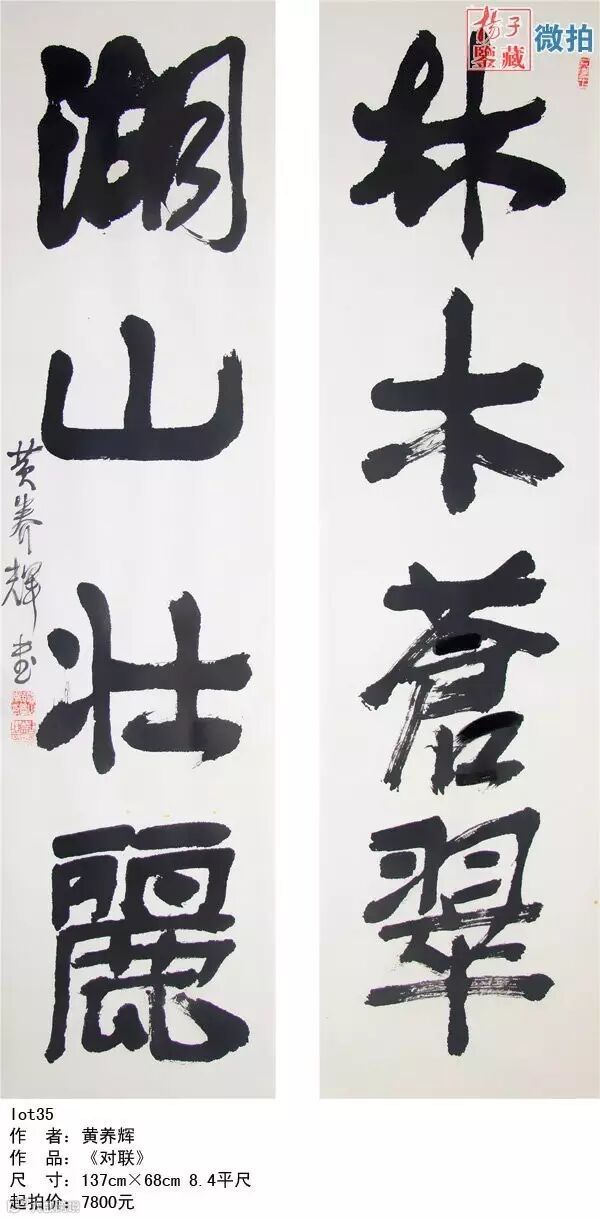 杨子
鉴藏
微拍
林木蒼翠
湖山壮麗
黄养辉书
lot35
作 者：黄养辉
作 品：《对联》
尺 寸：137cm×68cm 8.4平尺
起拍价：7800元